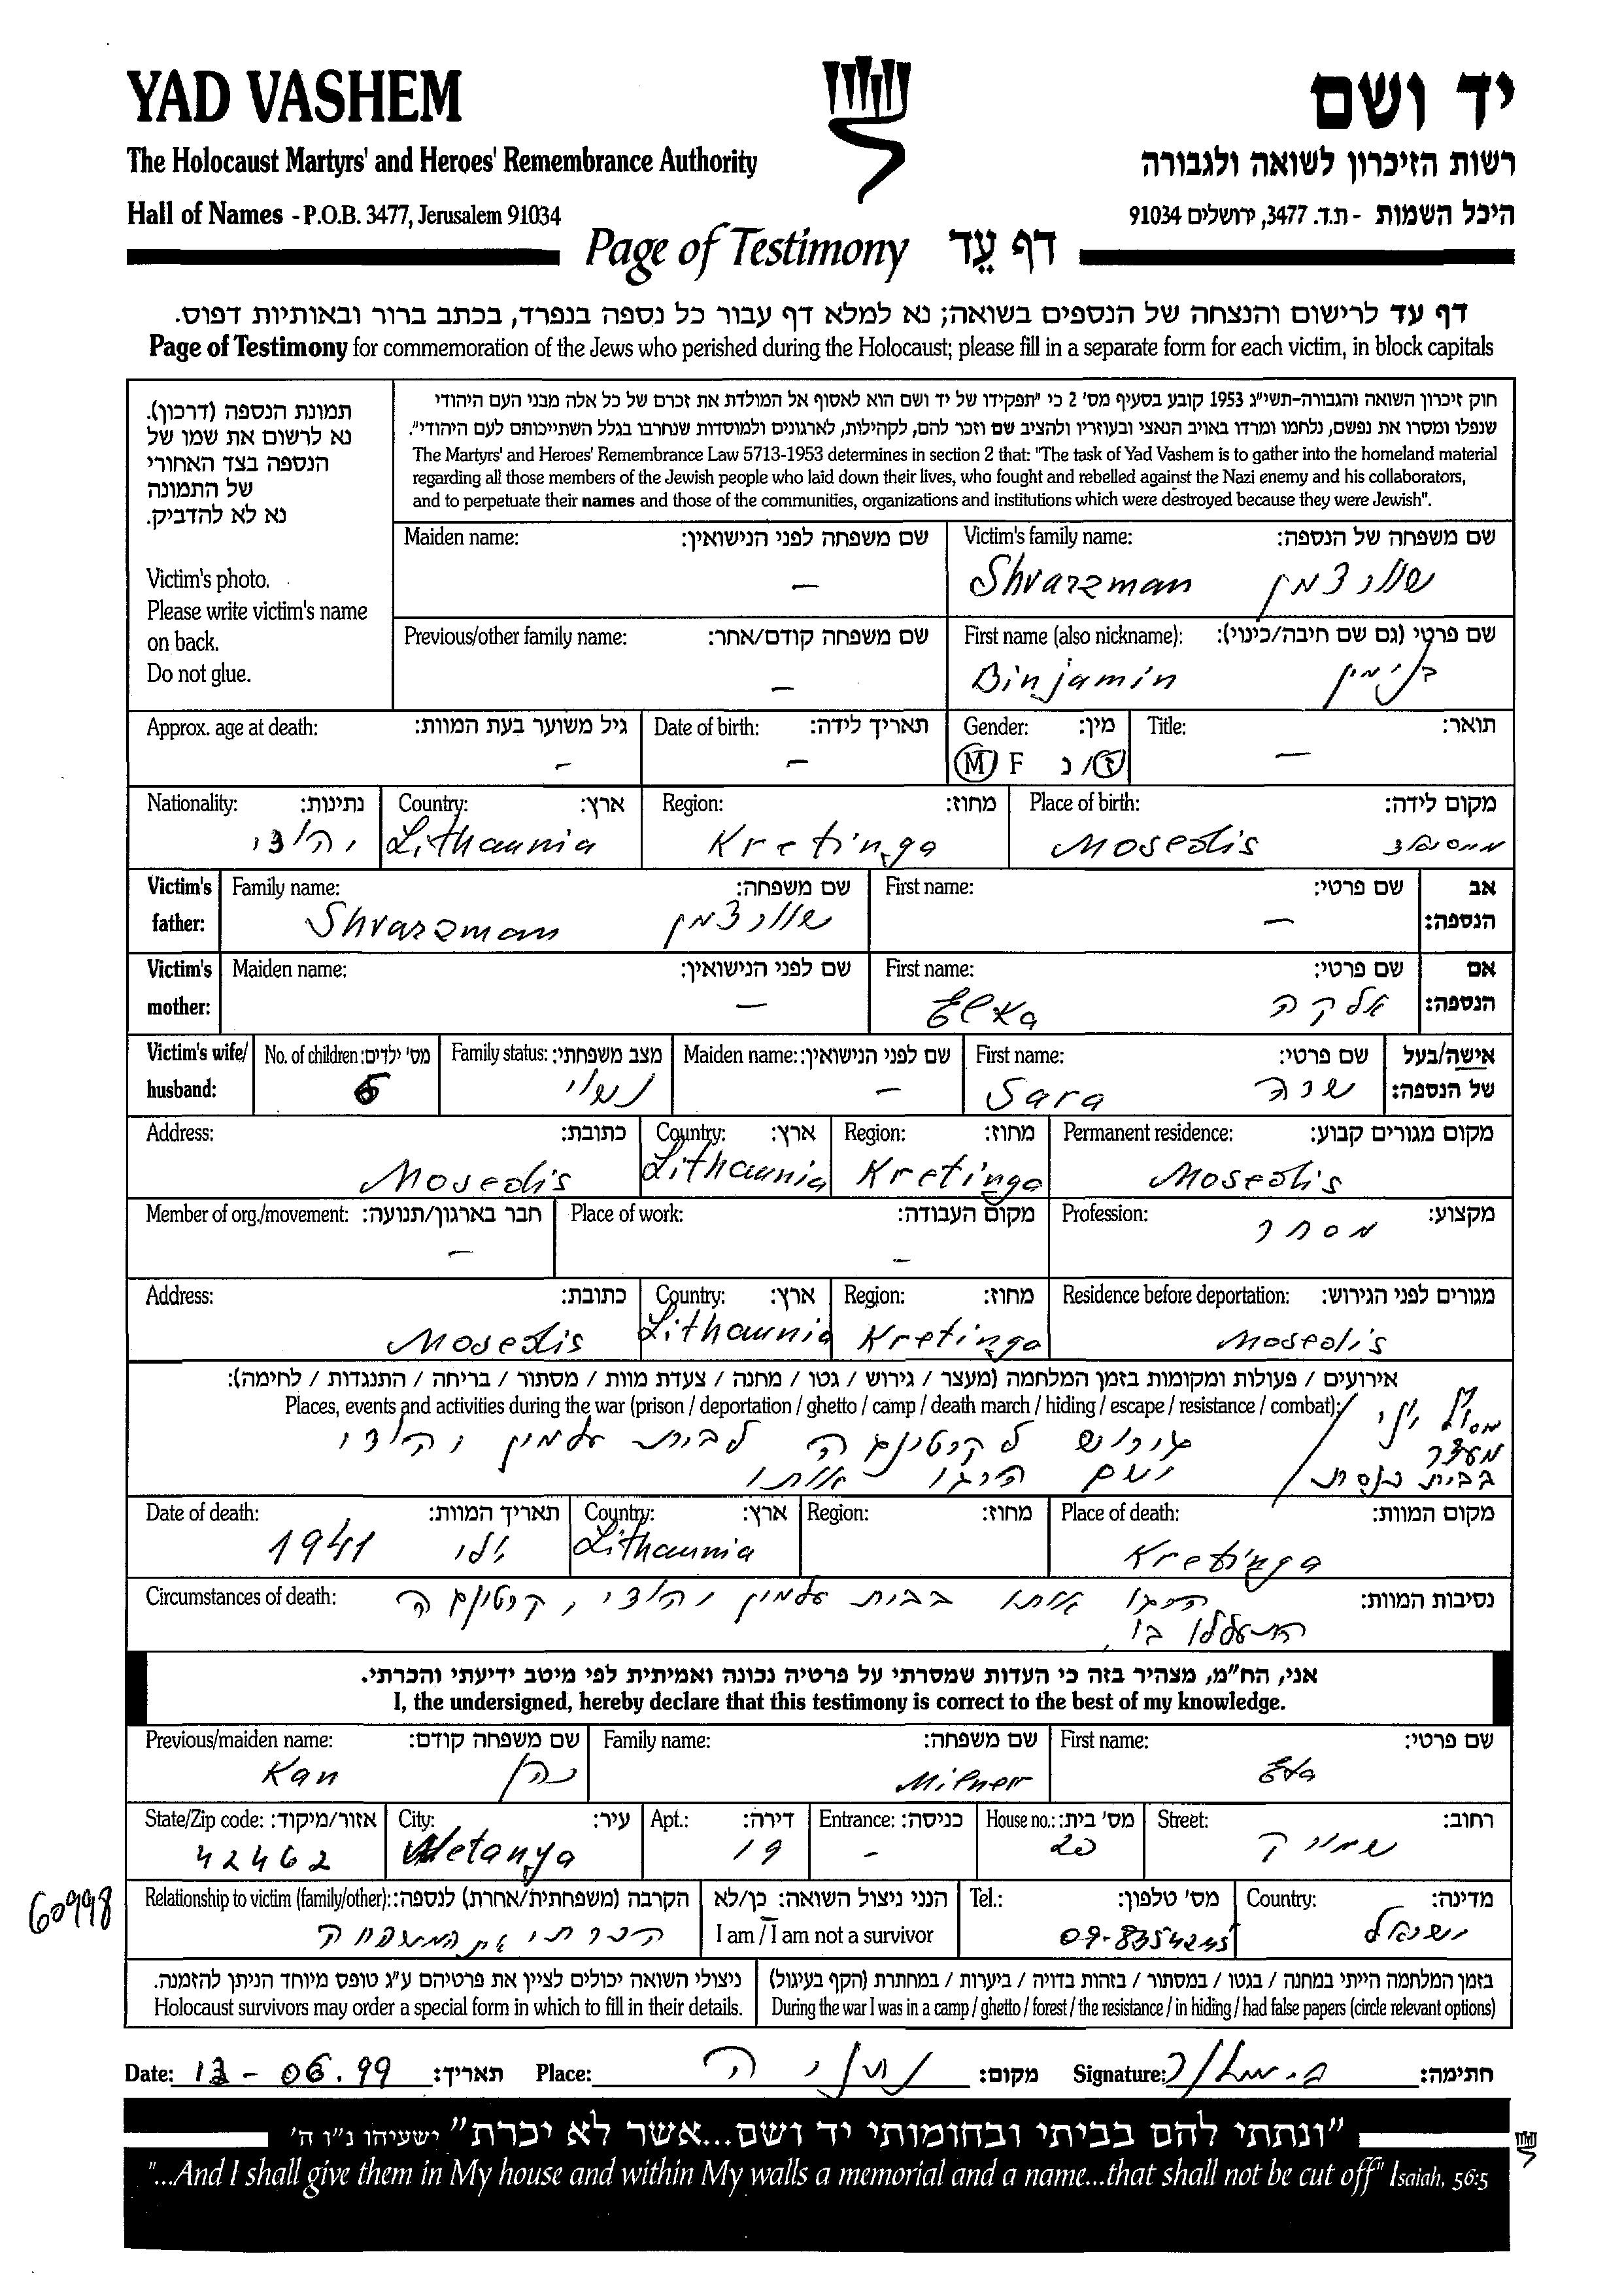 YAD VASHEM
יד ושם
The Holocaust Martyrs' and Heroes' Remembrance Authority
רשות הזיכרון לשואה ולגבורה
Hall of Names - P.O.B. 3477, Jerusalem 91034
היכל השמות - ת.ד. 3477, ירושלים 91034
Page of Testimony דף עֵד
דף עד לרישום והנצחה של הנספים בשואה; נא למלא דף עבור כל נספה בנפרד, בכתב ברור ובאותיות דפוס.
Page of Testimony for commemoration of the Jews who perished during the Holocaust; please fill in a separate form for each victim, in block capitals
תמונת הנספה (דרכון).
נא לרשום את שמו של
הנספה בצד האחורי
של התמונה
נא לא להדביק.
Victim's photo.
Please write victim's name
on back.
Do not glue.
חוק זיכרון השואה והגבורה-תשי"ג 1953 קובע בסעיף מס' 2 כי "תפקידו של יד ושם הוא לאסוף אל המולדת את זכרם של כל אלה מבני העם היהודי
שנפלו ומסרו את נפשם, נלחמו ומרדו באויב הנאצי ובעוזריו ולהציב שם וזכר להם, לקהילות, לארגונים ולמוסדות שנחרבו בגלל השתייכותם לעם היהודי".
The Martyrs' and Heroes' Remembrance Law 5713-1953 determines in section 2 that: "The task of Yad Vashem is to gather into the homeland material
regarding all those members of the Jewish people who laid down their lives, who fought and rebelled against the Nazi enemy and his collaborators,
and to perpetuate their names and those of the communities, organizations and institutions which were destroyed because they were Jewish".
Maiden name: שם משפחה לפני הנישואין: Victim's family name: שם משפחה של הנספה:
– Shvarzman שוורצמן
Previous/other family name: שם משפחה קודם/אחר: First name (also nickname): שם פרטי (גם שם חיבה/כינוי):
– Binjamin בנימין
Approx. age at death: גיל משוער בעת המוות: Date of birth: תאריך לידה: Gender: מין: Title: תואר:
– – M F ז/נ –
Nationality: נתינות: Country: ארץ: Region: מחוז: Place of birth: מקום לידה:
יהודי Lithaunia Kretinga Mosedis
Victim's Family name: שם משפחה: First name: שם פרטי: אב
father: Shvarzman שוורצמן – הנספה:
Victim's Maiden name: שם לפני הנישואין: First name: שם פרטי: אם
mother: – אלקה הנספה:
Victim's wife/ No. of children: מס' ילדים: Family status: מצב משפחתי: Maiden name: שם לפני הנישואין: First name: שם פרטי: אישה/בעל
husband: נשוי – Sara שרה של הנספה:
Address: כתובת: Country: ארץ: Region: מחוז: Permanent residence: מקום מגורים קבוע:
Mosedis Lithaunia Kretinga Mosedis
Member of org./movement: חבר בארגון/תנועה: Place of work: מקום העבודה: Profession: מקצוע:
– – מסחר
Address: כתובת: Country: ארץ: Region: מחוז: Residence before deportation: מגורים לפני הגירוש:
Mosedis Lithaunia Kretinga Mosedis
אירועים / פעולות ומקומות בזמן המלחמה (מעצר / גירוש / גטו / מחנה / צעדת מוות / מסתור / בריחה / התנגדות / לחימה):
Places, events and activities during the war (prison / deportation / ghetto / camp / death march / hiding / escape / resistance / combat):
מעצר
בבית כנסת
גירוש לקרטינגה לבית עלמין יהודי
ושם הרגו אותו
Date of death: תאריך המוות: Country: ארץ: Region: מחוז: Place of death: מקום המוות:
1941 יולי Lithaunia Kretinga
Circumstances of death: נסיבות המוות:
הרגו אותו בבית עלמין יהודי, קרטינגה
התעללו בו,
אני, הח"מ, מצהיר בזה כי העדות שמסרתי על פרטיה נכונה ואמיתית לפי מיטב ידיעתי והכרתי.
I, the undersigned, hereby declare that this testimony is correct to the best of my knowledge.
Previous/maiden name: שם משפחה קודם: Family name: שם משפחה: First name: שם פרטי:
Kan כהן Milner
State/Zip code: אזור/מיקוד: City: עיר: Apt.: דירה: Entrance: כניסה: House no.: מס' בית: Street: רחוב:
42462 Netanya 19 – 20
Relationship to victim (family/other): הקרבה (משפחתית/אחרת) לנספה: הנני ניצול השואה: כן/לא Tel.: מס' טלפון: Country: מדינה:
הכרתי את המשפחה I am / I am not a survivor 09-8354245 ישראל
60998
ניצולי השואה יכולים לציין את פרטיהם ע"ג טופס מיוחד הניתן להזמנה.
Holocaust survivors may order a special form in which to fill in their details.
בזמן המלחמה הייתי במחנה / בגטו / במסתור / בזהות בדויה / ביערות / במחתרת (הקף בעיגול)
During the war I was in a camp / ghetto / forest / the resistance / in hiding / had false papers (circle relevant options)
Date: 13-06.99 תאריך: Place: נתניה מקום: Signature: חתימה:
"ונתתי להם בביתי ובחומותי יד ושם...אשר לא יכרת" ישעיהו נ"ו ה'
"...And I shall give them in My house and within My walls a memorial and a name...that shall not be cut off" Isaiah, 56:5